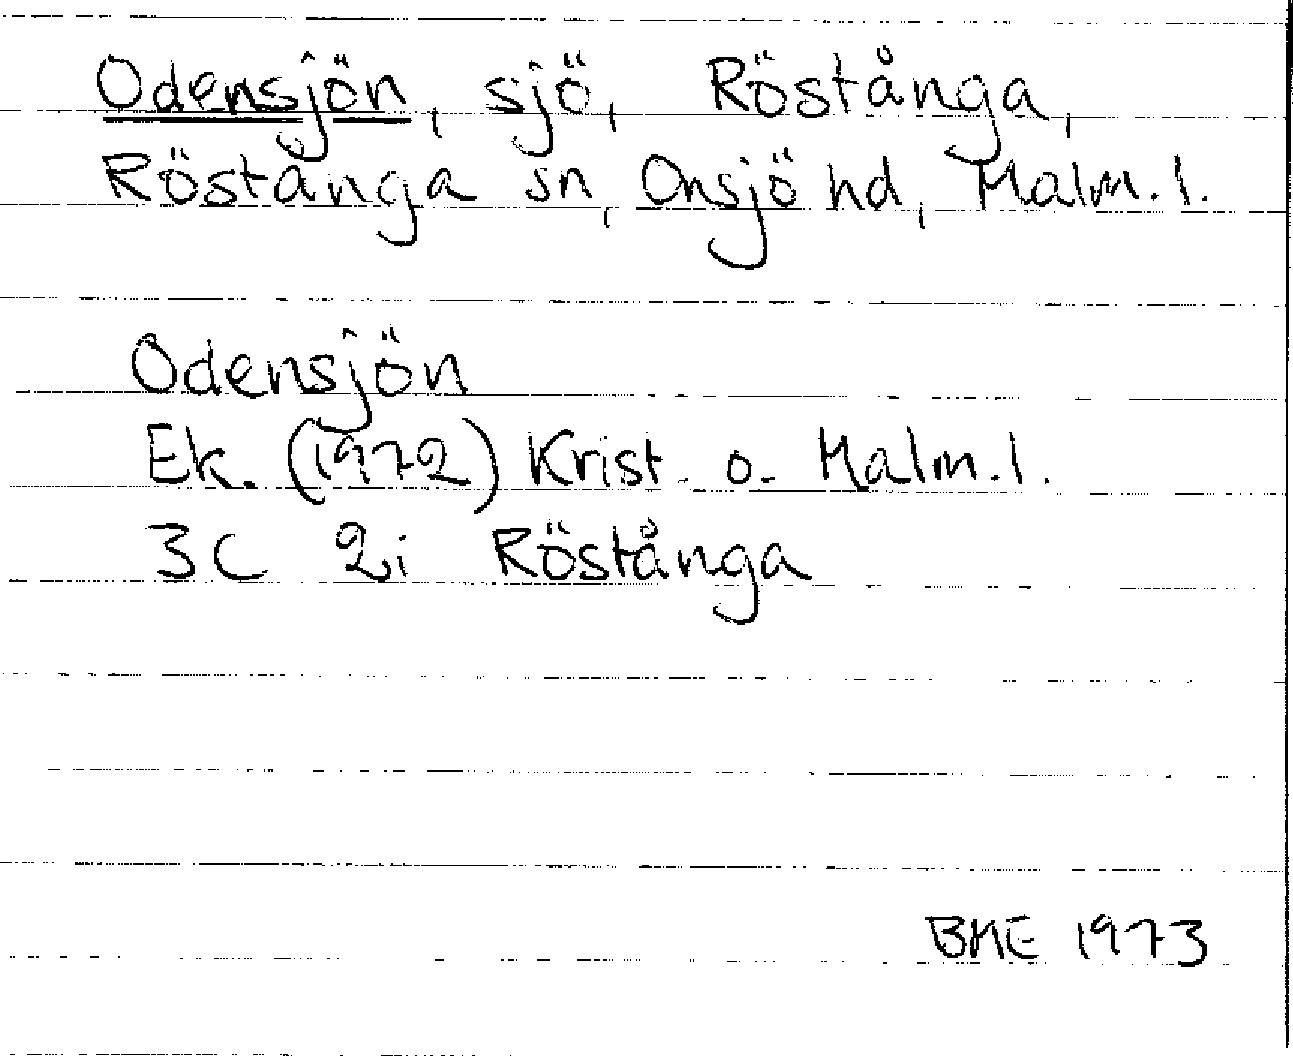 Odensjön, sjö, Röstånga,
Röstånga sn, Onsjö hd, Malm.l.
Odensjön
Ek. (1972) Krist. o. Malm.l.
3C 2i Röstånga
BME 1973